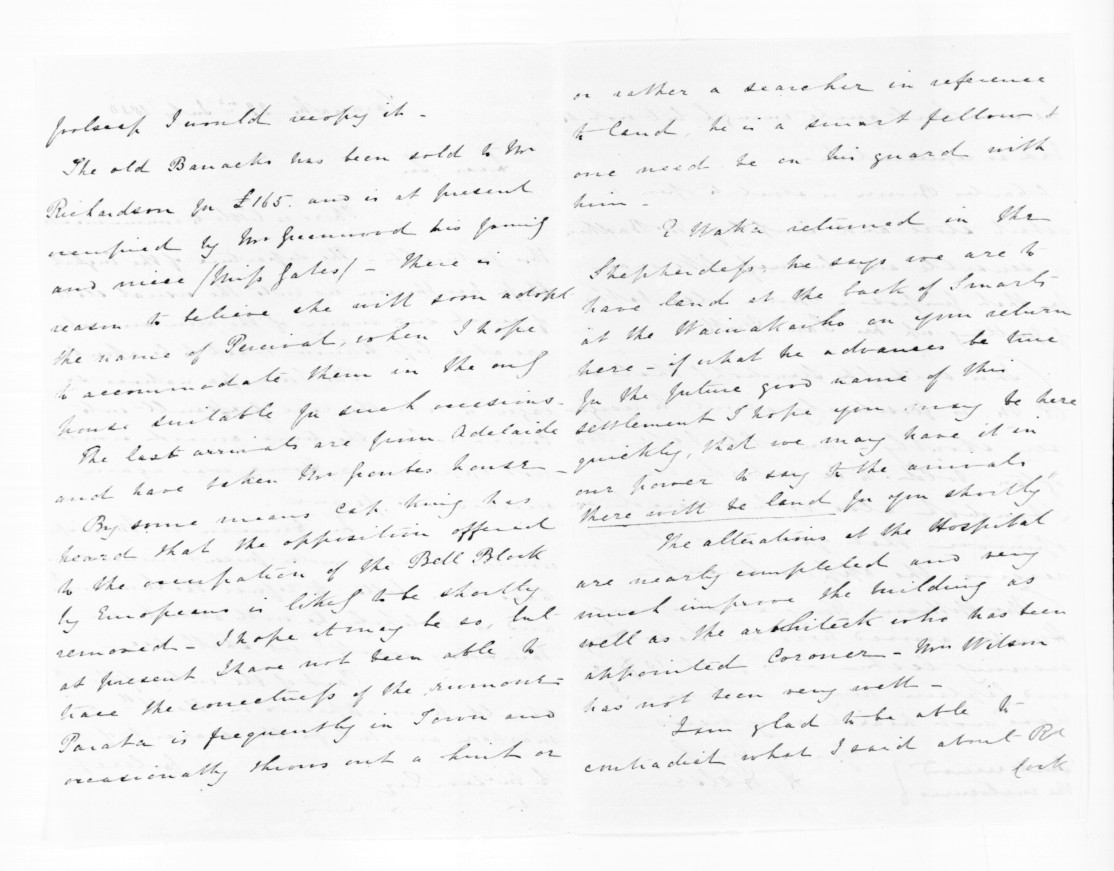 foolscap I would recopy it -
The old Barracks has been sold to Mr
Richardson for £165. and is at present
occupied by Mr Greenwood his family
and niece (Miss Gates) - There is
reason to believe she will soon adopt
the name of Percival, when I hope
to accommodate them in the only
house suitable for such occasions -
The last arrivals are from Adelaide
and have taken Mr house -
By some means Cap. King has
heard that the opposition offered
to the occupation of the Bell Block
by Europeans is likely to be shortly
removed - I hope it may be so, but
at present I have not been able to
trace the correctness of the rumour -
Parata is frequently in Town and
occasionally throws out a hint or
or rather a searcher in reference
to land, he is a smart fellow &
one need be on his guard with
him -
E Waka returned in the
Shepherdess he says we are to
have land at the back of Smarts
at the Waiwakaiho on your return
here - if what he advances be true
for the future good name of this
settlement I hope you may be here
quickly, that we may have it in
our power to say to the arrivals
there will be land for you shortly
The alterations at the Hospital
are nearly completed and very
much improve the building as
well as the architect who has been
appointed Coroner - Mrs Wilson
has not been very well -
I am glad to be able to
contradict what I said about Rd
Cock